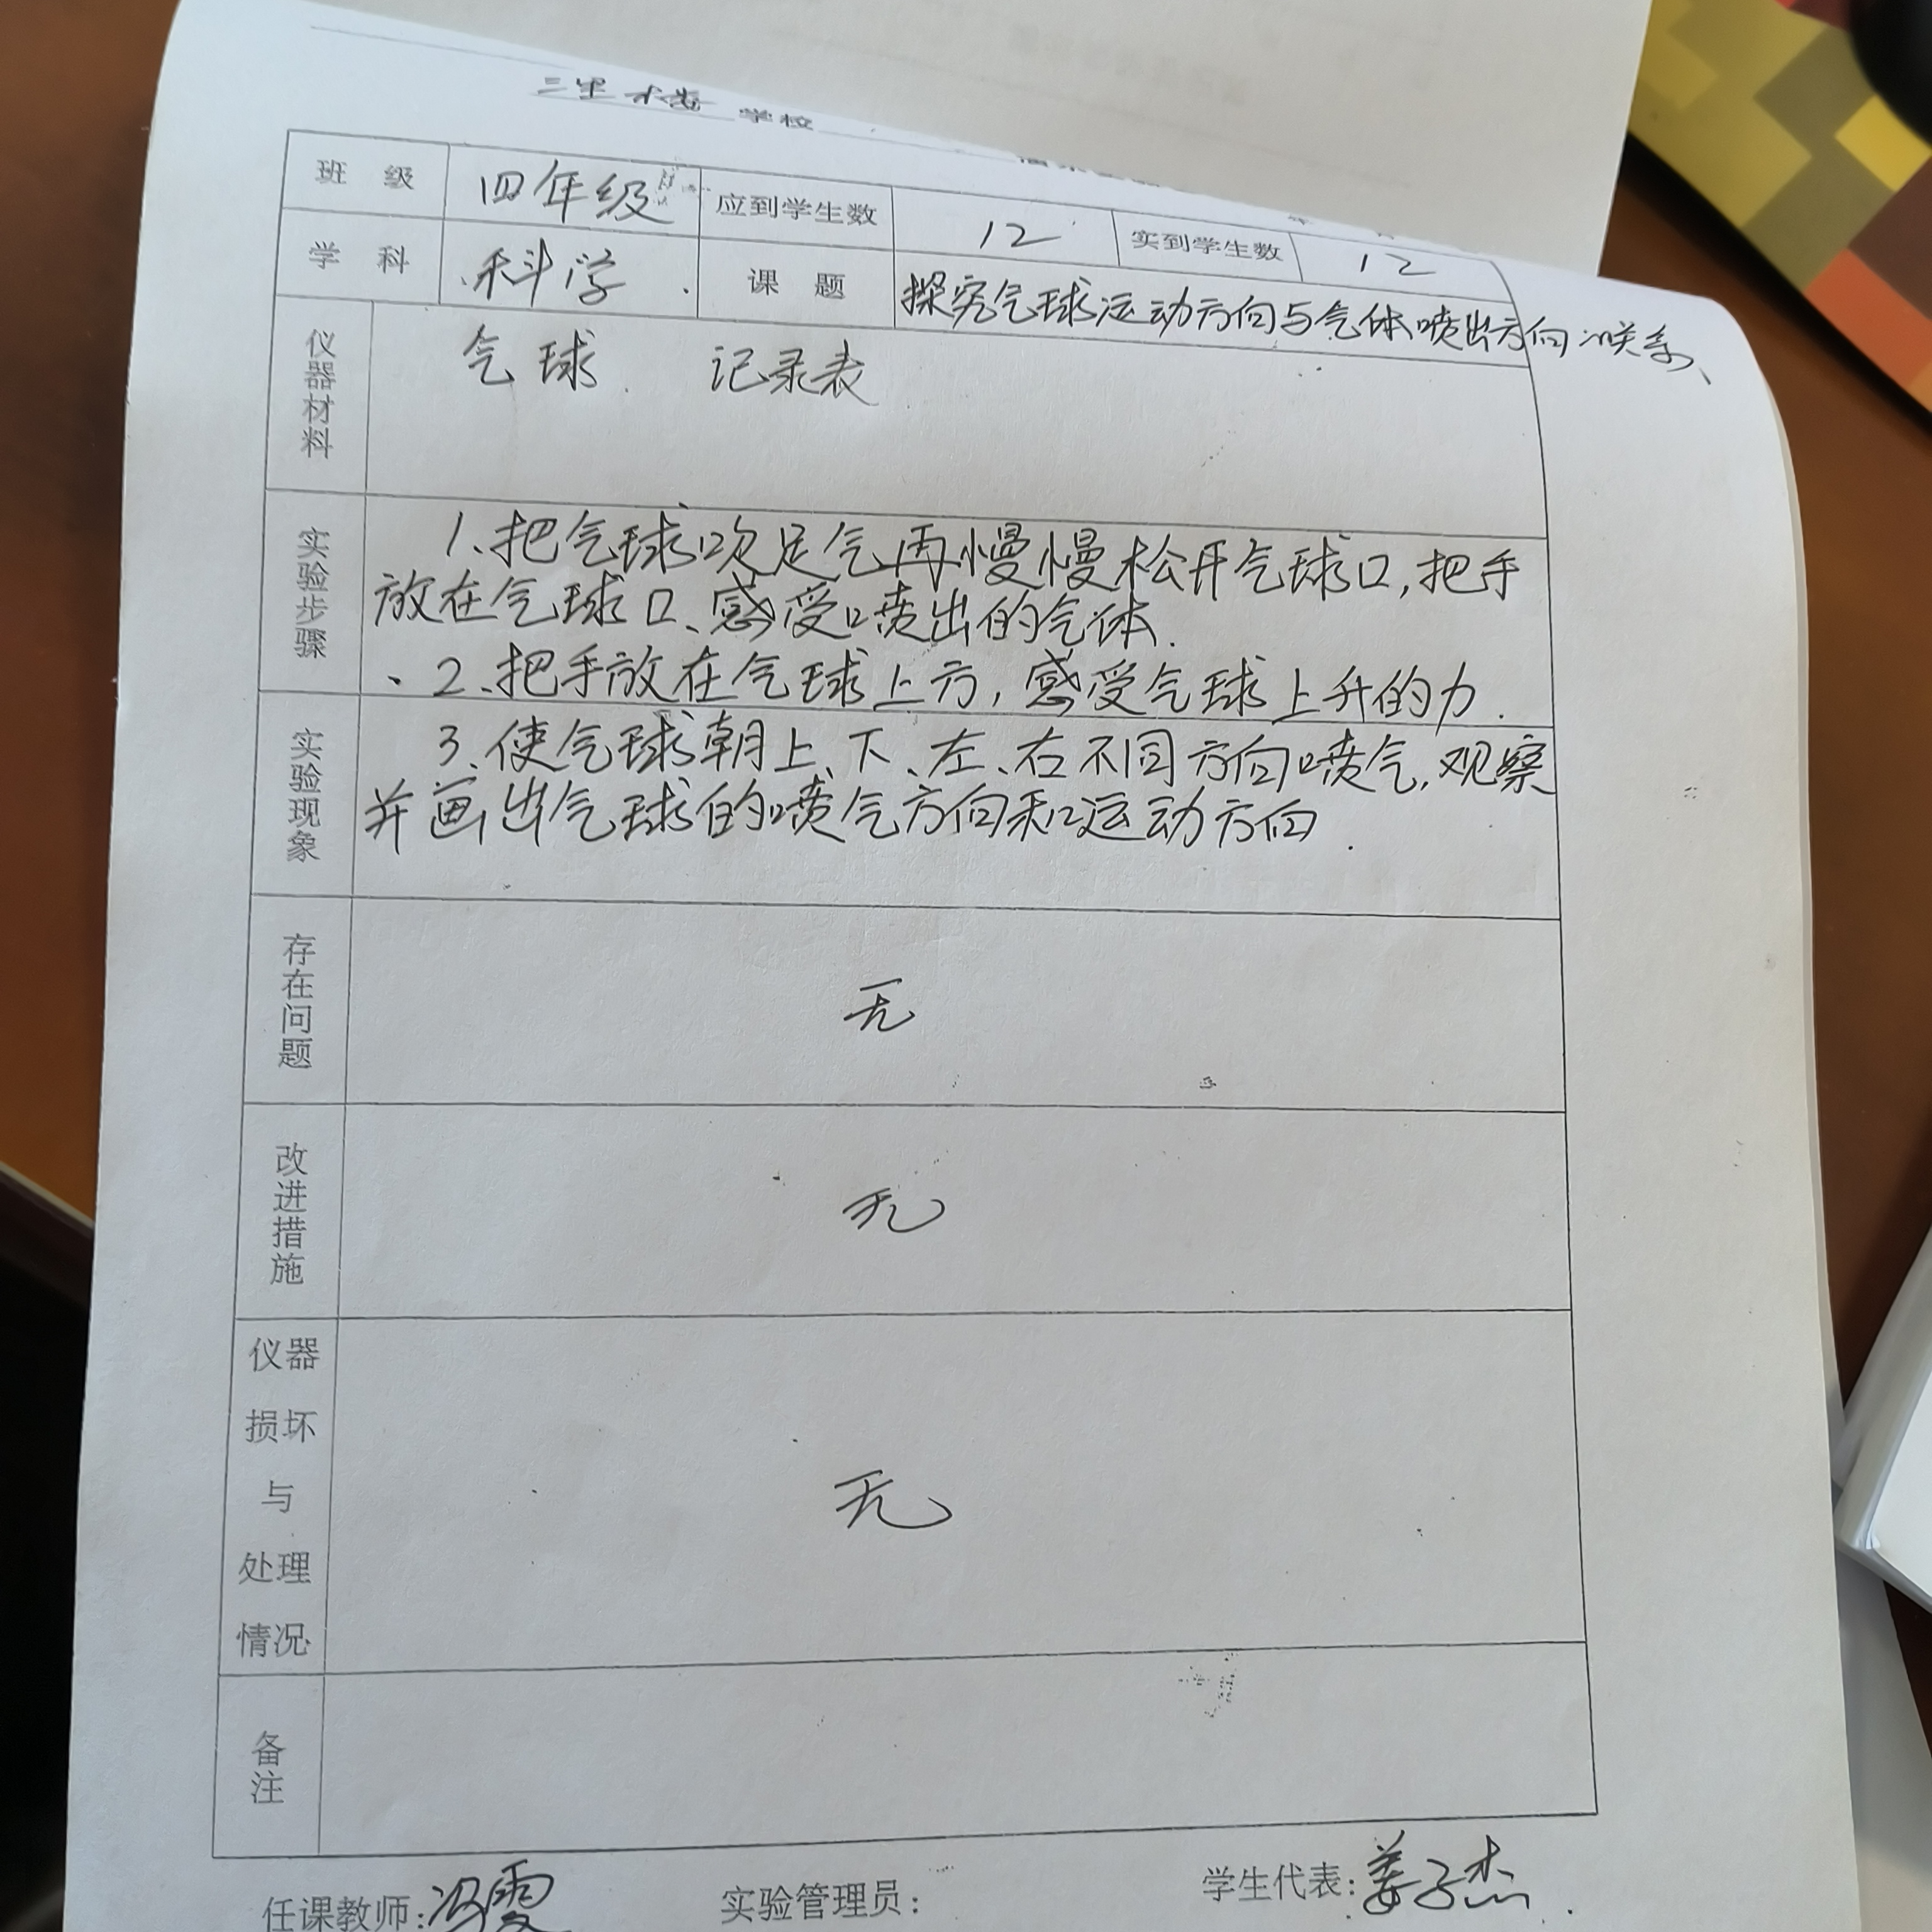 三里 学校
班 级 四年级 应到学生数 12 实到学生数 12
学 科 科学 课 题 探究气球运动方向与气体喷出方向的关系
仪器材料 气球 记录表
实验步骤
1、把气球吹足气再慢慢松开气球口,把手
放在气球口、感受喷出的气体.
2、把手放在气球上方,感受气球上升的力.
实验现象
3、使气球朝上、下、左、右不同方向喷气,观察
并画出气球的喷气方向和运动方向.
存在问题 无
改进措施 无
仪器
损坏
与
处理
情况
无
备注
任课教师:冯雯 实验管理员: 学生代表:姜子杰.